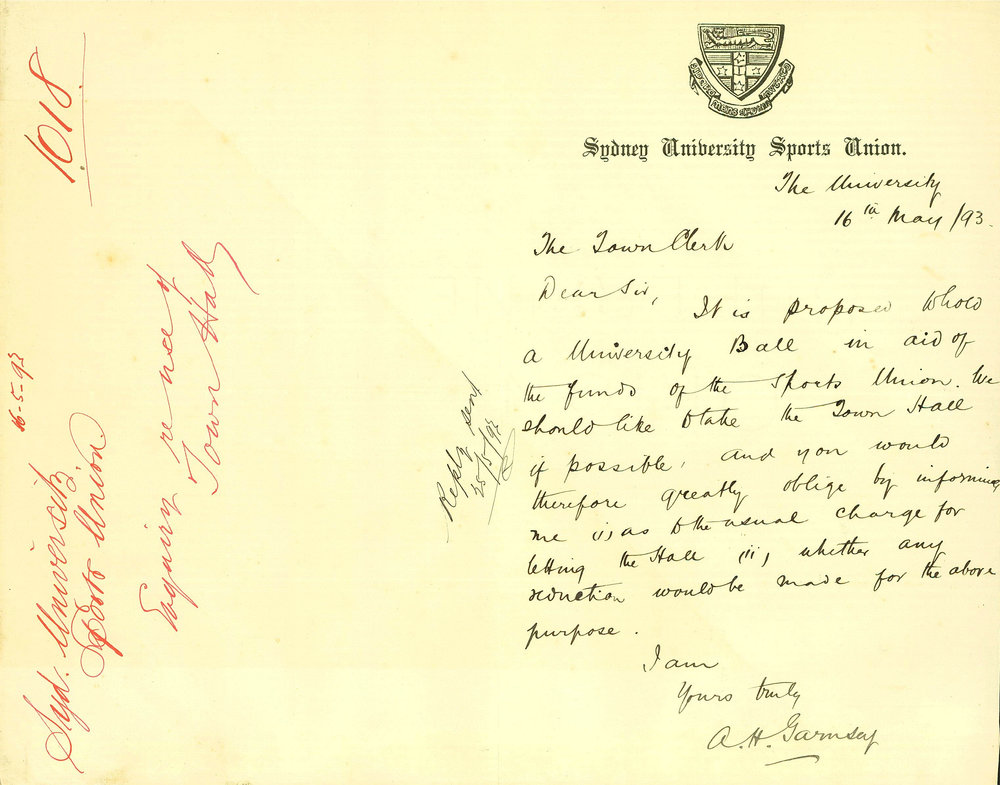 1018
16-5-93
Syd. University
Sports Union
Enquiry re use of
Town Hall
Sydney University Sports Union.
The University
16th May /93.
The Town Clerk
Dear Sir,
It is proposed to hold
a University Ball in aid of
the funds of the Sports Union. We
should like to take the Town Hall
if possible, and you would
therefore greatly oblige by informing
me (i) as to the usual charge for
letting the Hall (ii) whether any
reduction would be made for the above
purpose.
I am
Yours truly
A. H. Garnsey
Reply sent
25/5/93